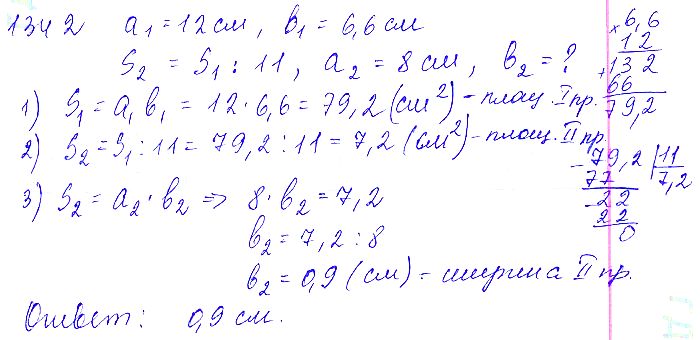 1342 a₁ = 12 см, в₁ = 6,6 см
S₂ = S₁ : 11, a₂ = 8 см, в₂ = ?
1) S₁ = a₁в₁ = 12 · 6,6 = 79,2 (см²) – площ. I пр.
2) S₂ = S₁ : 11 = 79,2 : 11 = 7,2 (см²) – площ. II пр.
3) S₂ = a₂ · в₂ => 8 · в₂ = 7,2
в₂ = 7,2 : 8
в₂ = 0,9 (см) – ширина II пр.
Ответ: 0,9 см.
× 6,6
12
+ 132
66
79,2
- 79,2 | 11
77 7,2
- 22
22
0